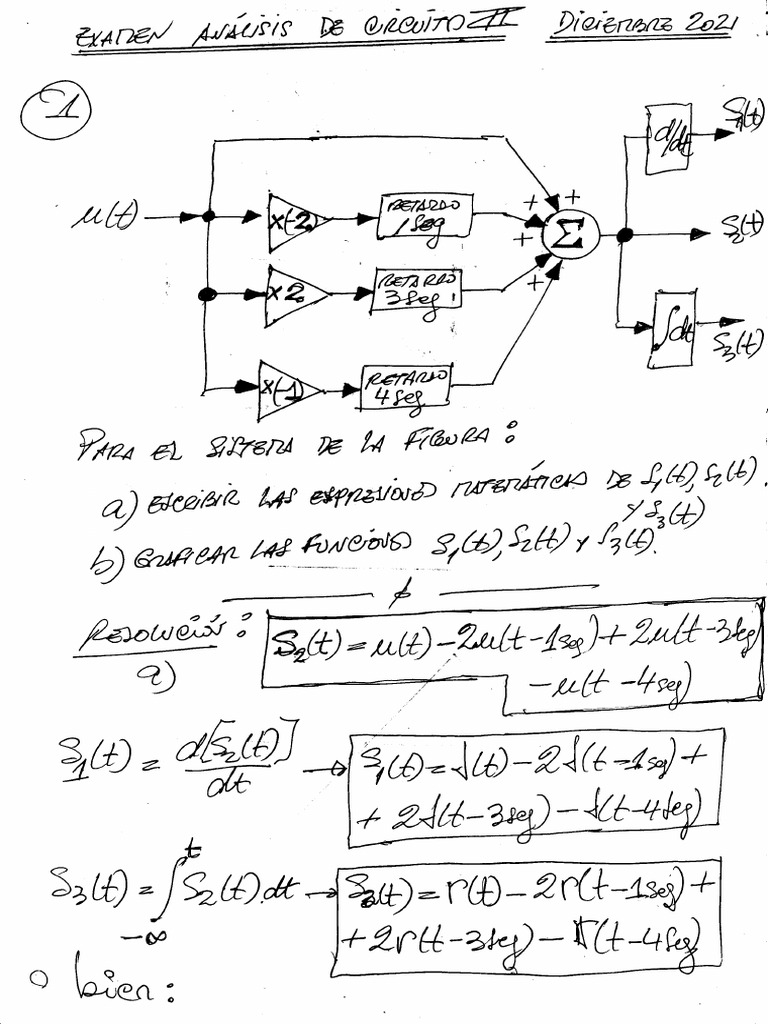 EXAMEN ANÁLISIS DE CIRCUITO II DICIEMBRE 2021
1
d/dt
S1(t)
u(t)
x(-2)
RETARDO
1 seg
+
+
+
+
Σ
S2(t)
x2
RETARDO
3 seg
∫dt
S3(t)
x(-1)
RETARDO
4 seg
PARA EL SISTEMA DE LA FIGURA:
a) ESCRIBIR LAS ESPRESIONES MATEMÁTICAS DE S1(t), S2(t)
Y S3(t)
b) GRAFICAR LAS FUNCIONES S1(t), S2(t) Y S3(t).
RESOLUCIÓN:
a)
S2(t) = u(t) - 2u(t-1seg) + 2u(t-3seg)
- u(t-4seg)
S1(t) = d[S2(t)]/dt → S1(t) = δ(t) - 2δ(t-1seg) +
+ 2δ(t-3seg) - δ(t-4seg)
S3(t) = ∫_{-∞}^{t} S2(t).dt → S3(t) = r(t) - 2r(t-1seg) +
+ 2r(t-3seg) - r(t-4seg)
O bien: